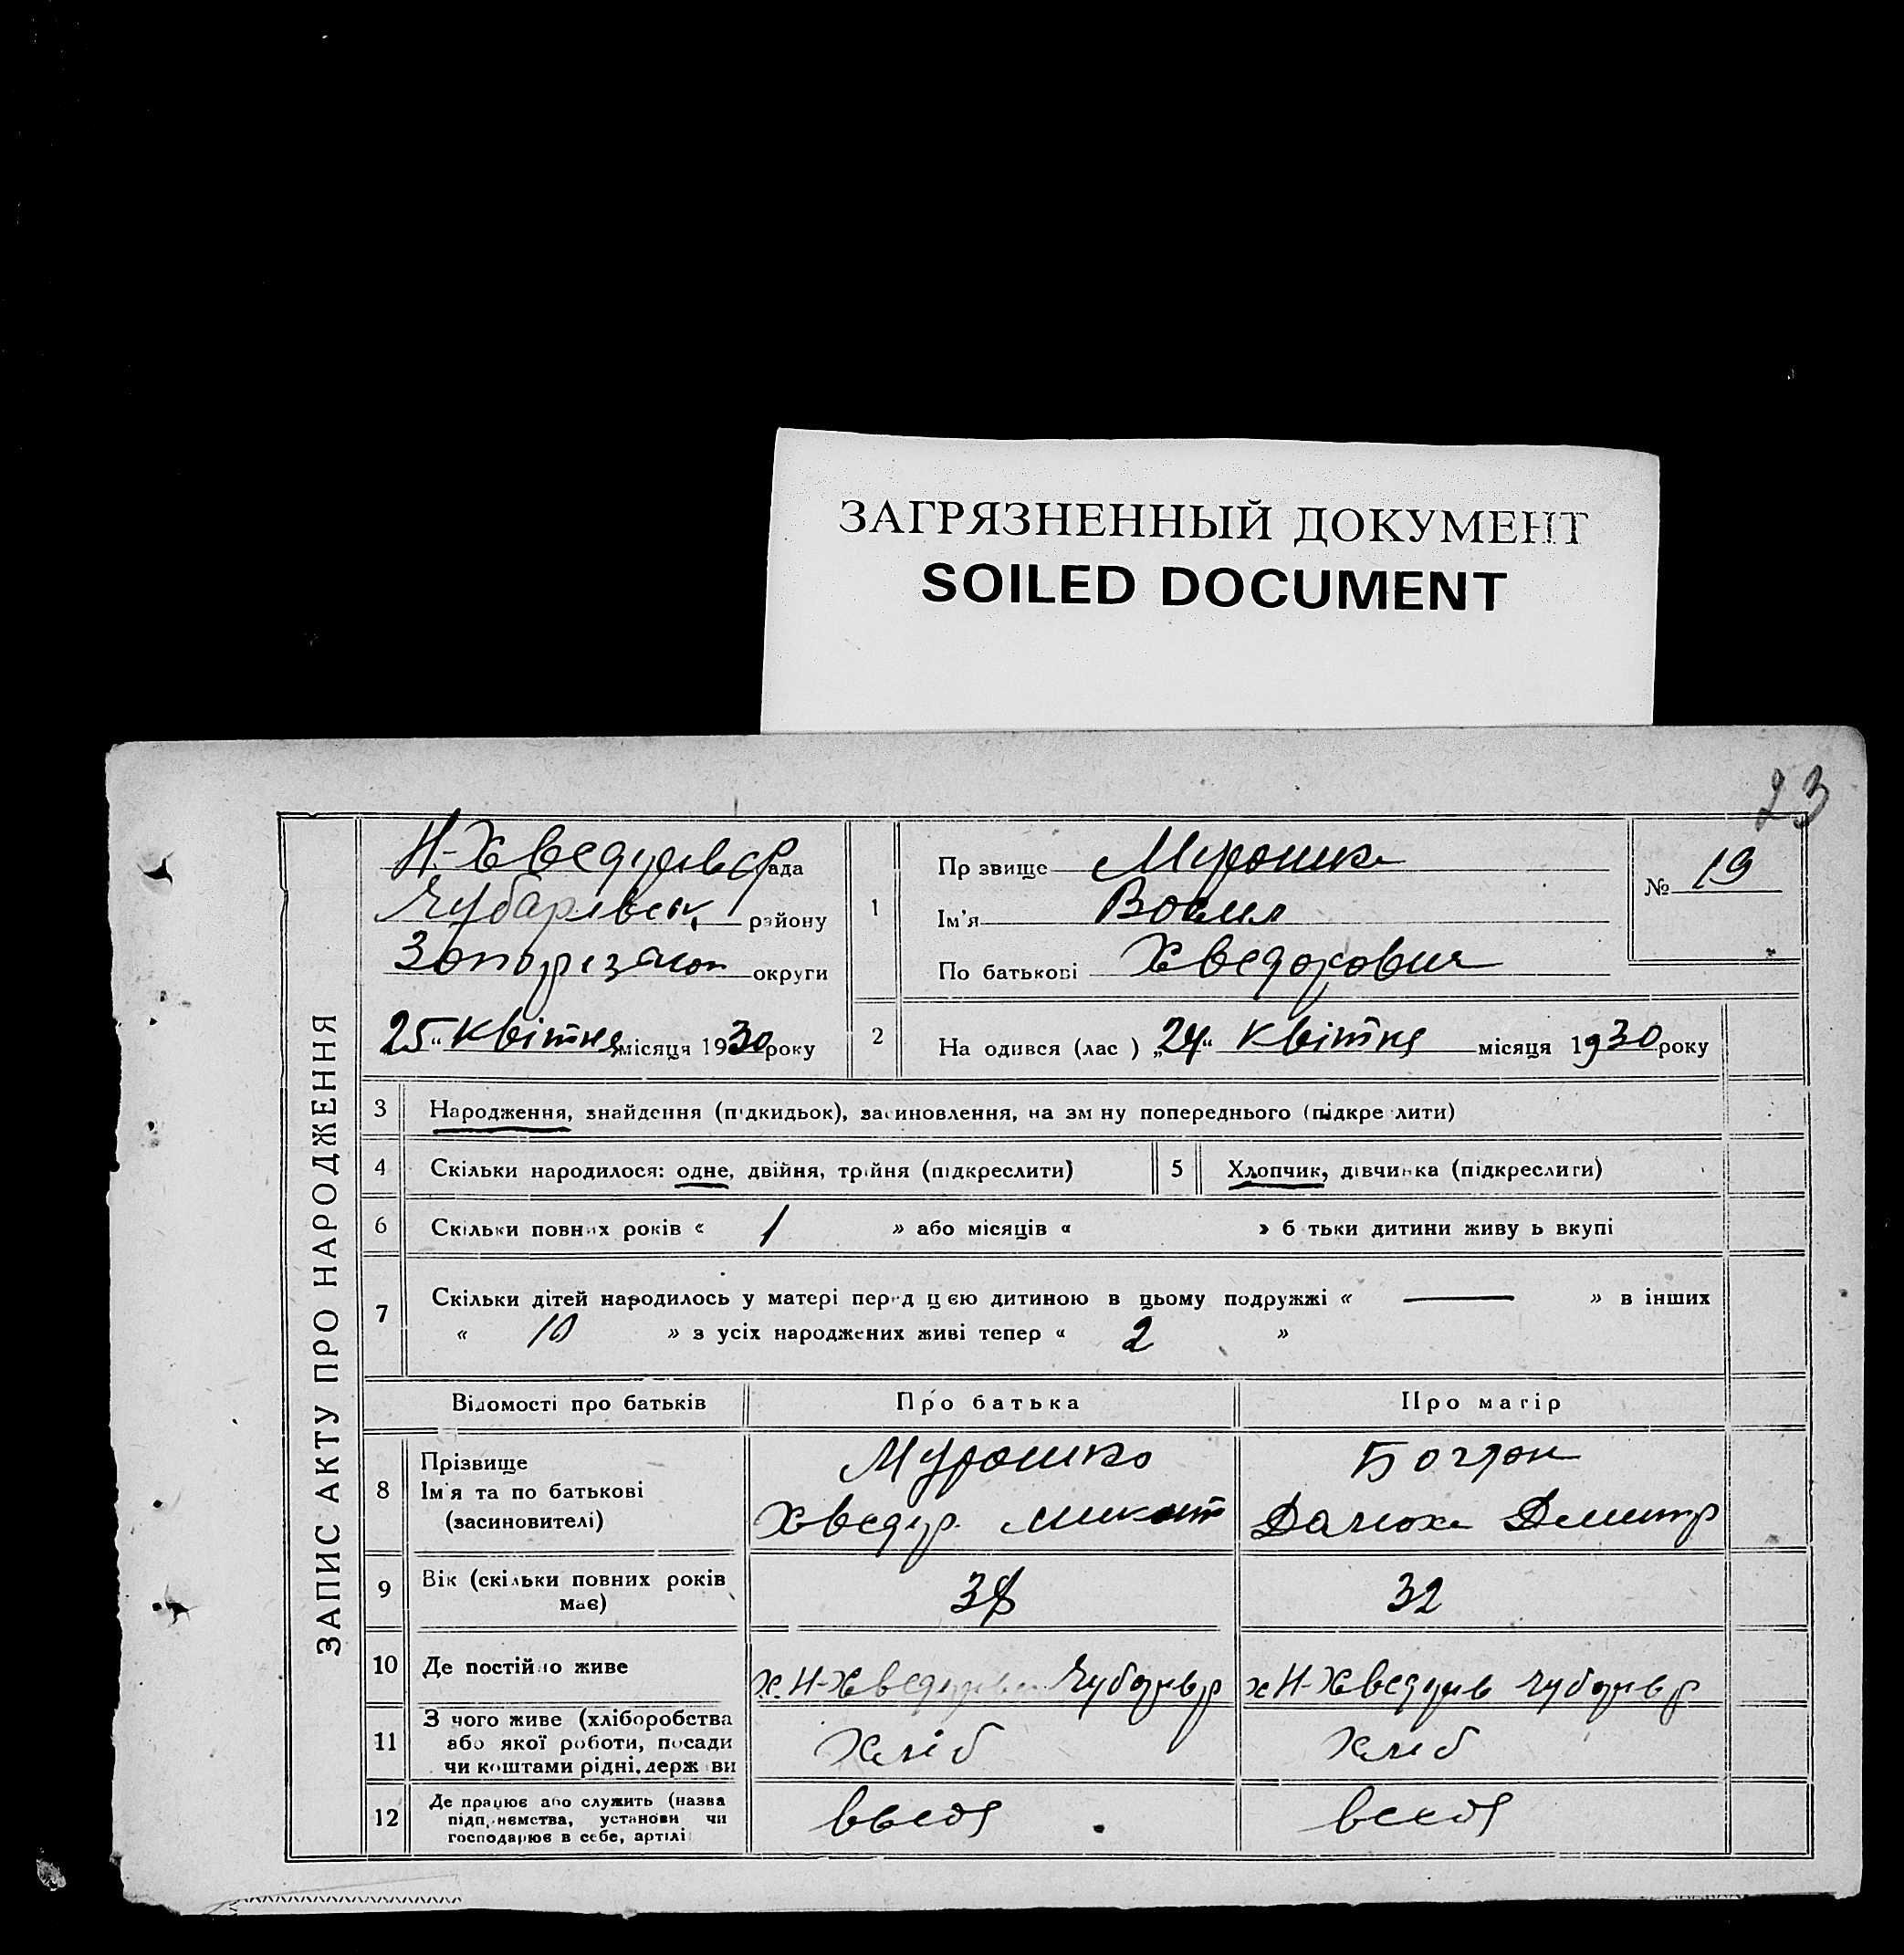 ЗАГРЯЗНЕННЫЙ ДОКУМЕНТ
SOILED DOCUMENT
23
ЗАПИС АКТУ ПРО НАРОДЖЕННЯ
Н-Хведорівс рада
Чубарівськ району
Запорізької округи
25 "квітня місяця 1930 року
1
Пр звище Мурашко
Ім'я
По батькові Хведорович
№ 19
2
На одився (лас ) „24" квітня місяця 1930 року
3 Народження, знайдення (підкидьок), засиновлення, на зм ну попереднього (підкре лити)
4 Скільки народилося: одне, двійня, трійня (підкреслити)
5 Хлопчик, дівчинка (підкреслити)
6 Скільки повних років « 1 » або місяців « » б тьки дитини живу ь вкупі
7 Скільки дітей народилось у матері перед цією дитиною в цьому подружжі « — » в інших
« 10 » з усіх народжених живі тепер « 2 »
Відомості про батьків Про батька Про матір
8 Прізвище
Ім'я та по батькові
(засиновителі)
Мурашко
Хведор Микит
Богдан
Демитр
9 Вік (скільки повних років
має)
38
32
10 Де постійно живе
х. Н-Хведорівс Чубар р
х Н-Хведорів Чубар р
11 З чого живе (хліборобства
або якої роботи, посади
чи коштами рідні, держ ви
Хліб
Хліб
12 Де працює або служить (назва
підприємства, установи чи
господарює в себе, артілі
в себя
в себя